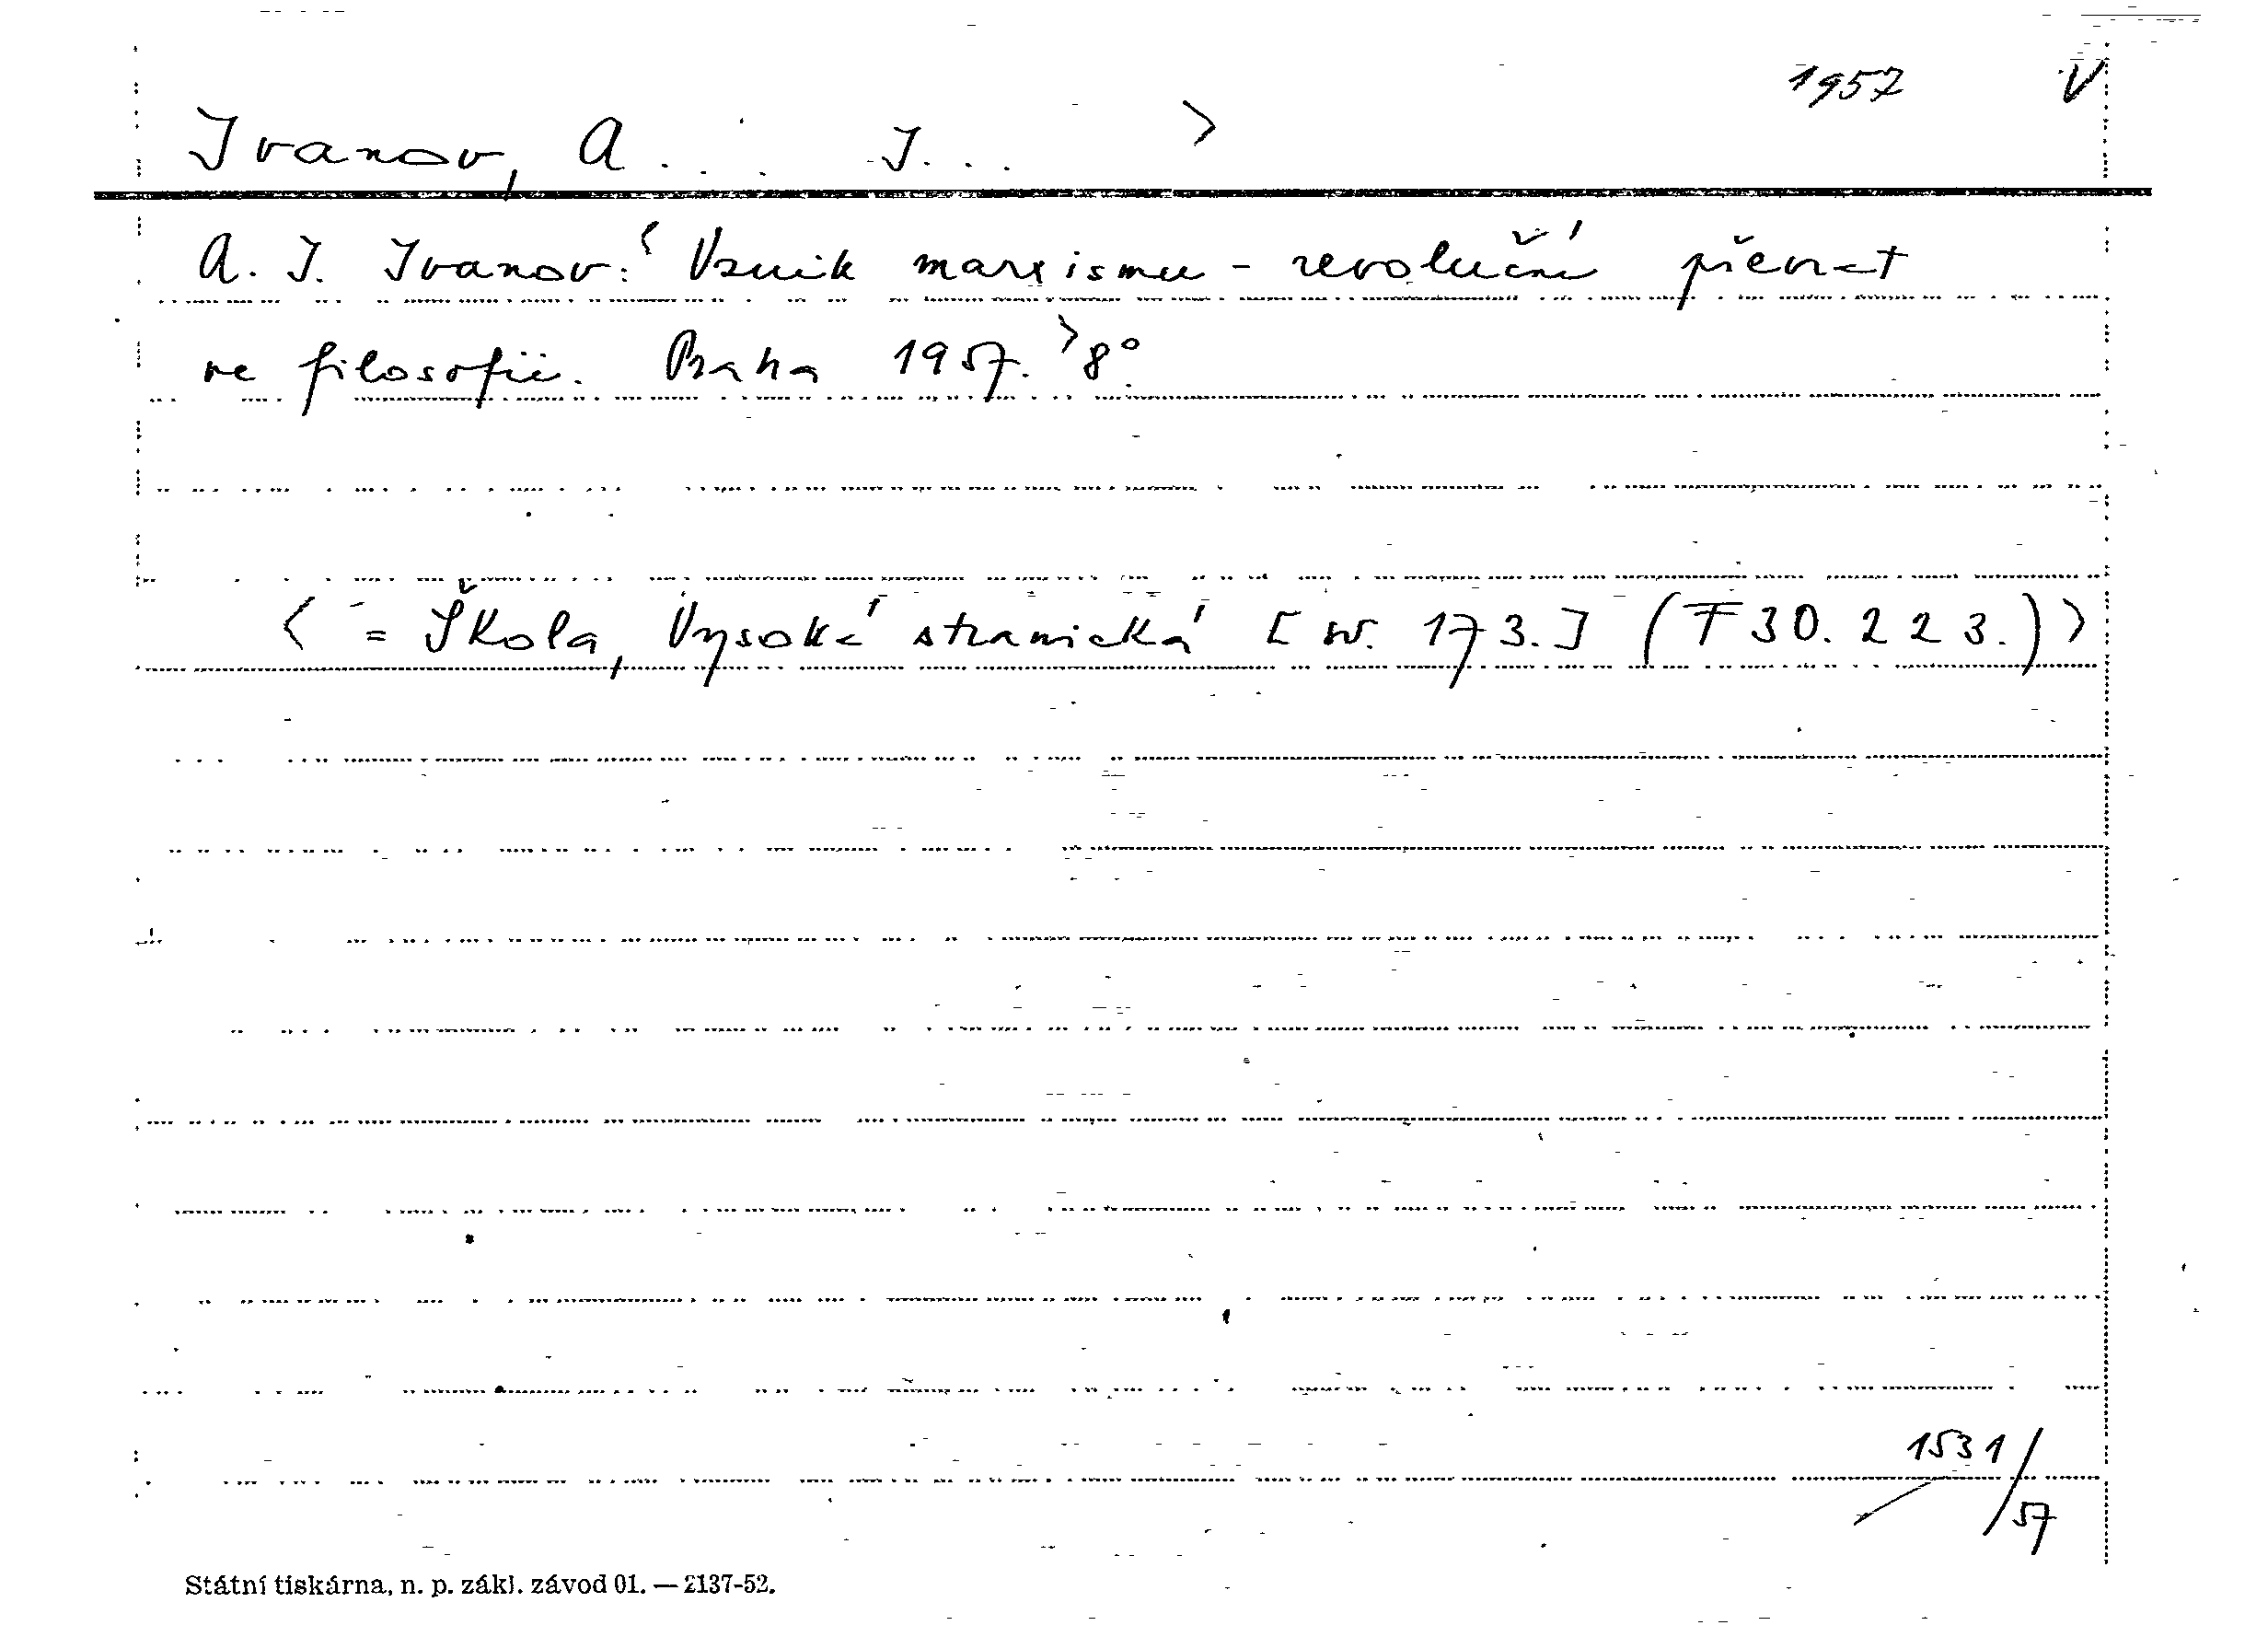 1957 V
Ivanov, A... I... >
A. I. Ivanov: < Vznik marxismu - revoluční převrat
ve filosofii. Praha 1957. > 8°.
< = Škola, Vysoká stranická [sv. 173.] (F 30.223.) >
1531/57
Státní tiskárna, n. p. zákl. závod 01. — 2137-52.